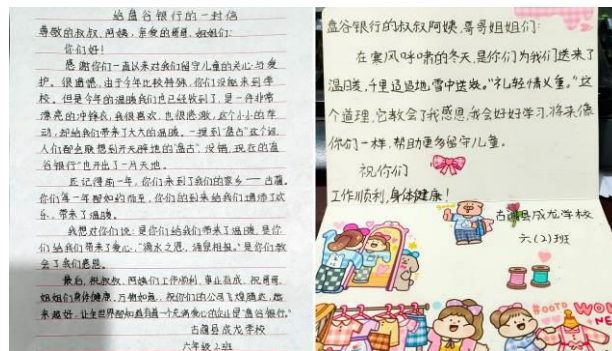 给盘谷银行的一封信
尊敬的叔叔、阿姨,亲爱的哥哥、姐姐们:
你们好!
感谢你们一直以来对我们留守儿童的关心与爱
护。很遗憾,由于今年比较特殊,你们没能来到学
校。但是今年的温暖我们也已经收到了,是一件非常
漂亮的冲锋衣,我很喜欢,也很感激,这个小小的举
动,却给我们带来了大大的温暖。一提到“盘古”这个词,
人们都会联想到开天辟地的“盘古”。没错,现在的“盘
谷银行”也开出了一片天地。
还记得前一年,你们来到了我们的家乡——古蔺。
你们每一年都如约而至,你们的到来给我们增添了欢
乐,带来了温暖。
我想对你们说:是你们给我们带来了温暖,是你
们给我们带来了爱心,“滴水之恩,涌泉相报。”是你们教
会了我们感恩。
最后,祝叔叔、阿姨们工作顺利,事业有成,祝哥哥、
姐姐们身体健康,万事如意,祝你们的公司飞煌腾达,越
来越好,让全世界都知道有一个充满爱心的企业是“盘谷银行。”
古蔺县成龙学校
六年级2班
盘谷银行的叔叔阿姨,哥哥姐姐们:
在寒风呼啸的冬天,是你们为我们送来了
温暖,千里迢迢地,雪中送炭。“礼轻情义重。”这
个道理,它教会了我感恩,我会好好学习,将来像
你们一样,帮助更多留守儿童。
祝你们
工作顺利,身体健康!
古蔺县成龙学校
六(2)班
#OOTD
WOW
NE